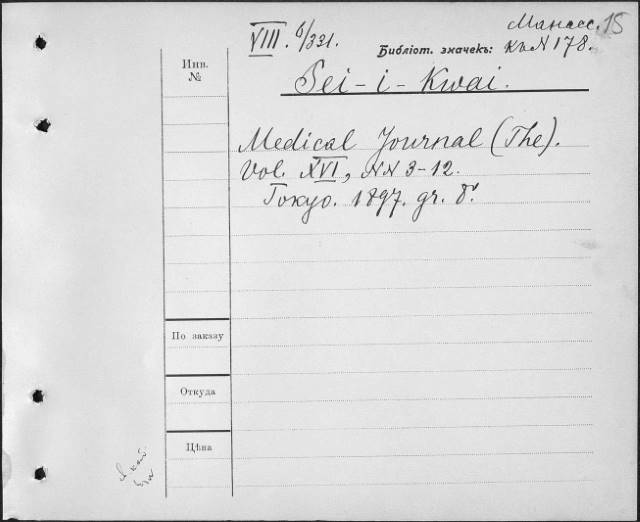 VIII. 6/331.
Манасс. 15
Библіот. значекъ: къ N 178.
Инв. №
Sei-i-Kwai.
Medical Journal (The).
Vol. XVI, NN 3-12.
Tokyo. 1897. gr. 8°.
По заказу
Откуда
Цѣна